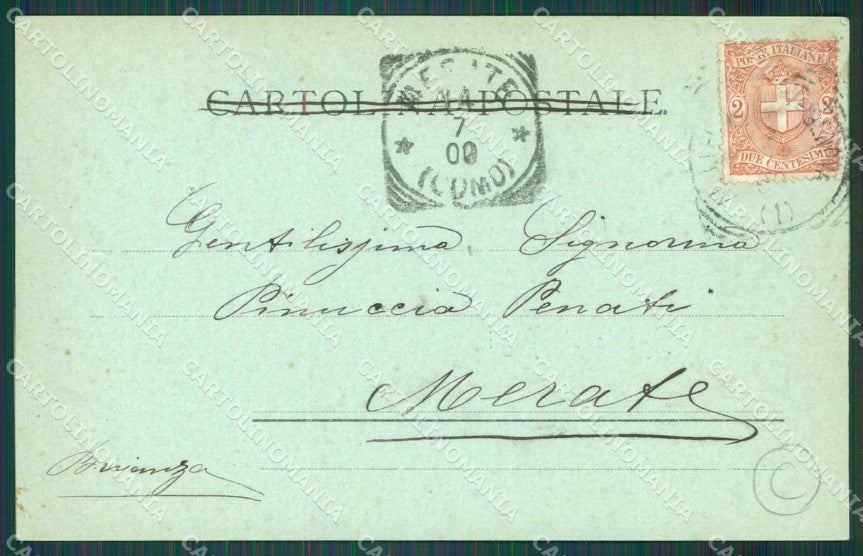 CARTOLINA POSTALE.
MERATE
14
7
00
(COMO)
POSTE ITALIANE
2 2
DUE CENTESIMI
(1)
Gentilissima Signorina
Pinuccia Penati
Merate
Brianza
C
CARTOLINOMANIA